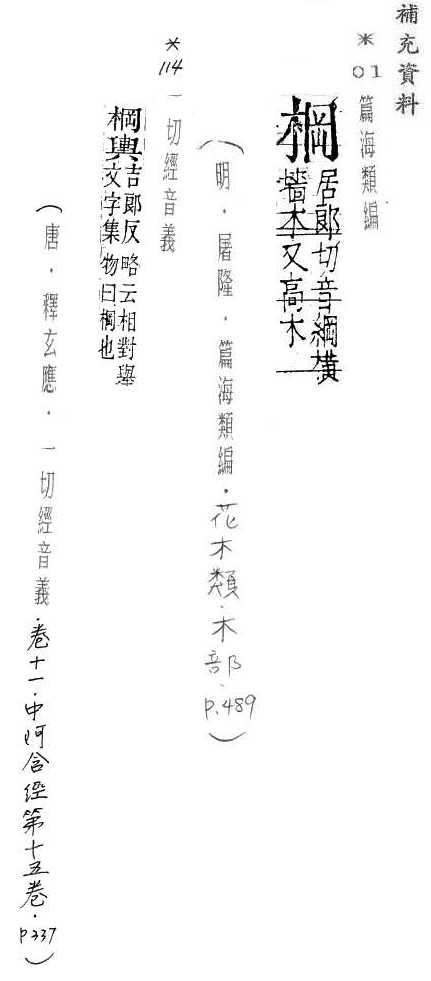 補充資料
*01 篇海類編
棡 居郎切音綱橫
牆木又高木
(明．屠隆．篇海類編．花木類．木部．p.489)
*114 一切經音義
棡輿 吉郎反略云相對舉
文字集 物曰棡也
(唐．釋玄應．一切經音義．卷十一．中阿含經第十五卷．p337)